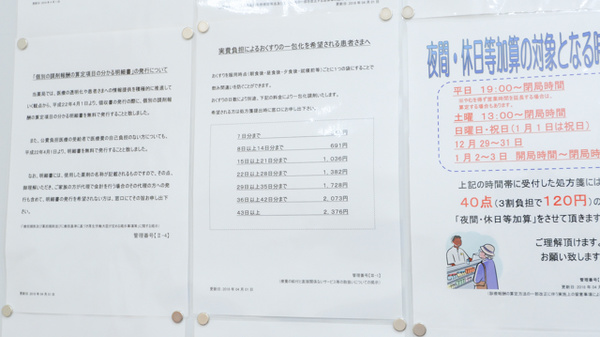 「個別の調剤報酬の算定項目の分かる明細書」の発行について
当薬局では、医療の透明化や患者さまへの情報提供を積極的に推進して
いく観点から、平成22年4月1日より、領収書の発行の際に、個別の調剤報
酬の算定項目の分かる明細書を無料で発行することと致しました。
また、公費負担医療の受給者で医療費の自己負担のない方についても、
平成22年4月1日より、明細書を無料で発行することと致しました。
なお、明細書には、使用した薬剤の名称が記載されるものですので、その点、
御理解いただき、ご家族の方が代理で会計を行う場合のその代理の方への発
行も含めて、明細書の発行を希望されない方は、窓口にてその旨お申し出下
さい。
実費負担によるおくすりの一包化を希望される患者さまへ
おくすりを服用時点(朝食後・昼食後・夕食後・就寝前等)ごとにひとつの袋にすることで
飲み間違いを防ぐことができます。
おくすりの日数により別途、下記の料金により一包化調剤いたします。
希望される方は処方箋提出時に窓口にお申し出下さい。
7日分まで
8日以上14日分まで 691円
15日以上21日分まで 1,036円
22日以上28日分まで 1,382円
29日以上35日分まで 1,728円
36日以上42日分まで 2,073円
43日以上 2,376円
夜間・休日等加算の対象となる時
平日 19:00～閉局時間
土曜 13:00～閉局時間
日曜日・祝日(1月1日は祝日)
12月29～31日
1月2～3日 開局時間～閉局時
上記の時間帯に受付した処方箋には
40点(3割負担で120円)の
「夜間・休日等加算」をさせて頂きます
ご理解頂けます
お願い致します